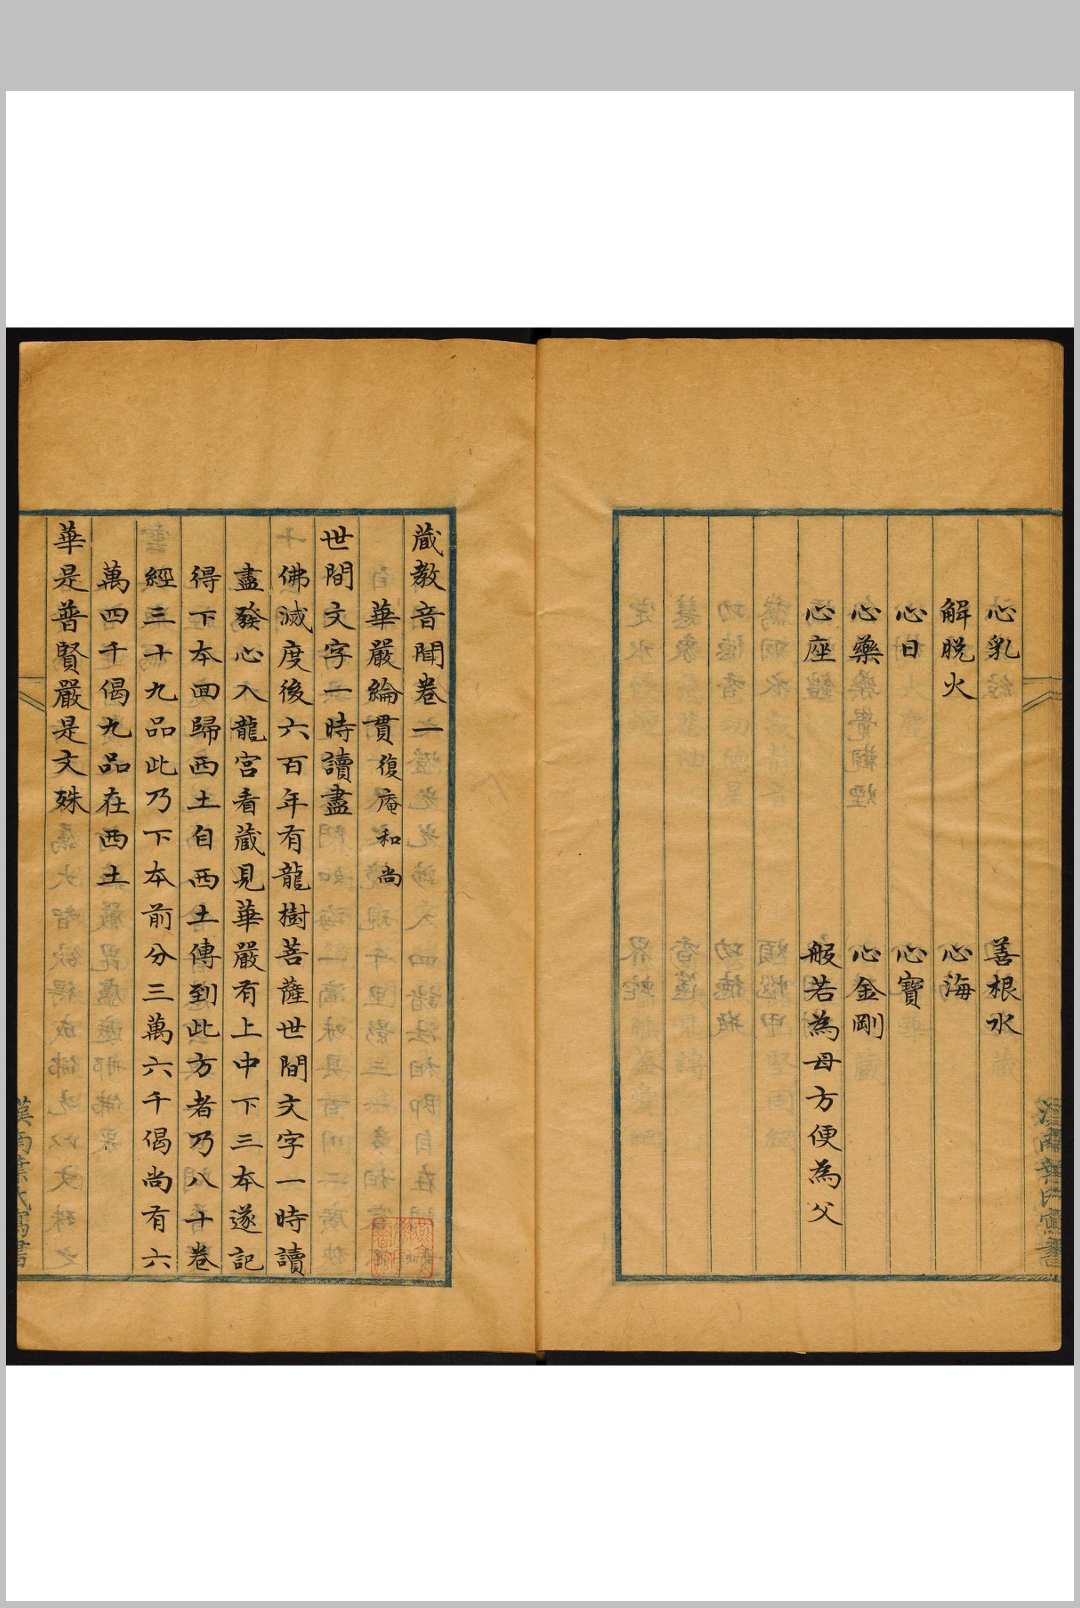 心乳　善根水
解脱火　心海
心日　心寶
心藥　心金剛
心座　般若為母方便為父
蔵教音聞卷二
華嚴綸貫　復庵和尚
世間文字一時讀盡
佛滅度後六百年有龍樹菩薩世間文字一時讀
盡發心入龍宮看藏見華嚴有上中下三本遂記
得下本回歸西土自西土傳到此方者乃八十卷
經三十九品此乃下本前分三萬六千偈尚有六
萬四千偈九品在西土
華是普賢嚴是文殊